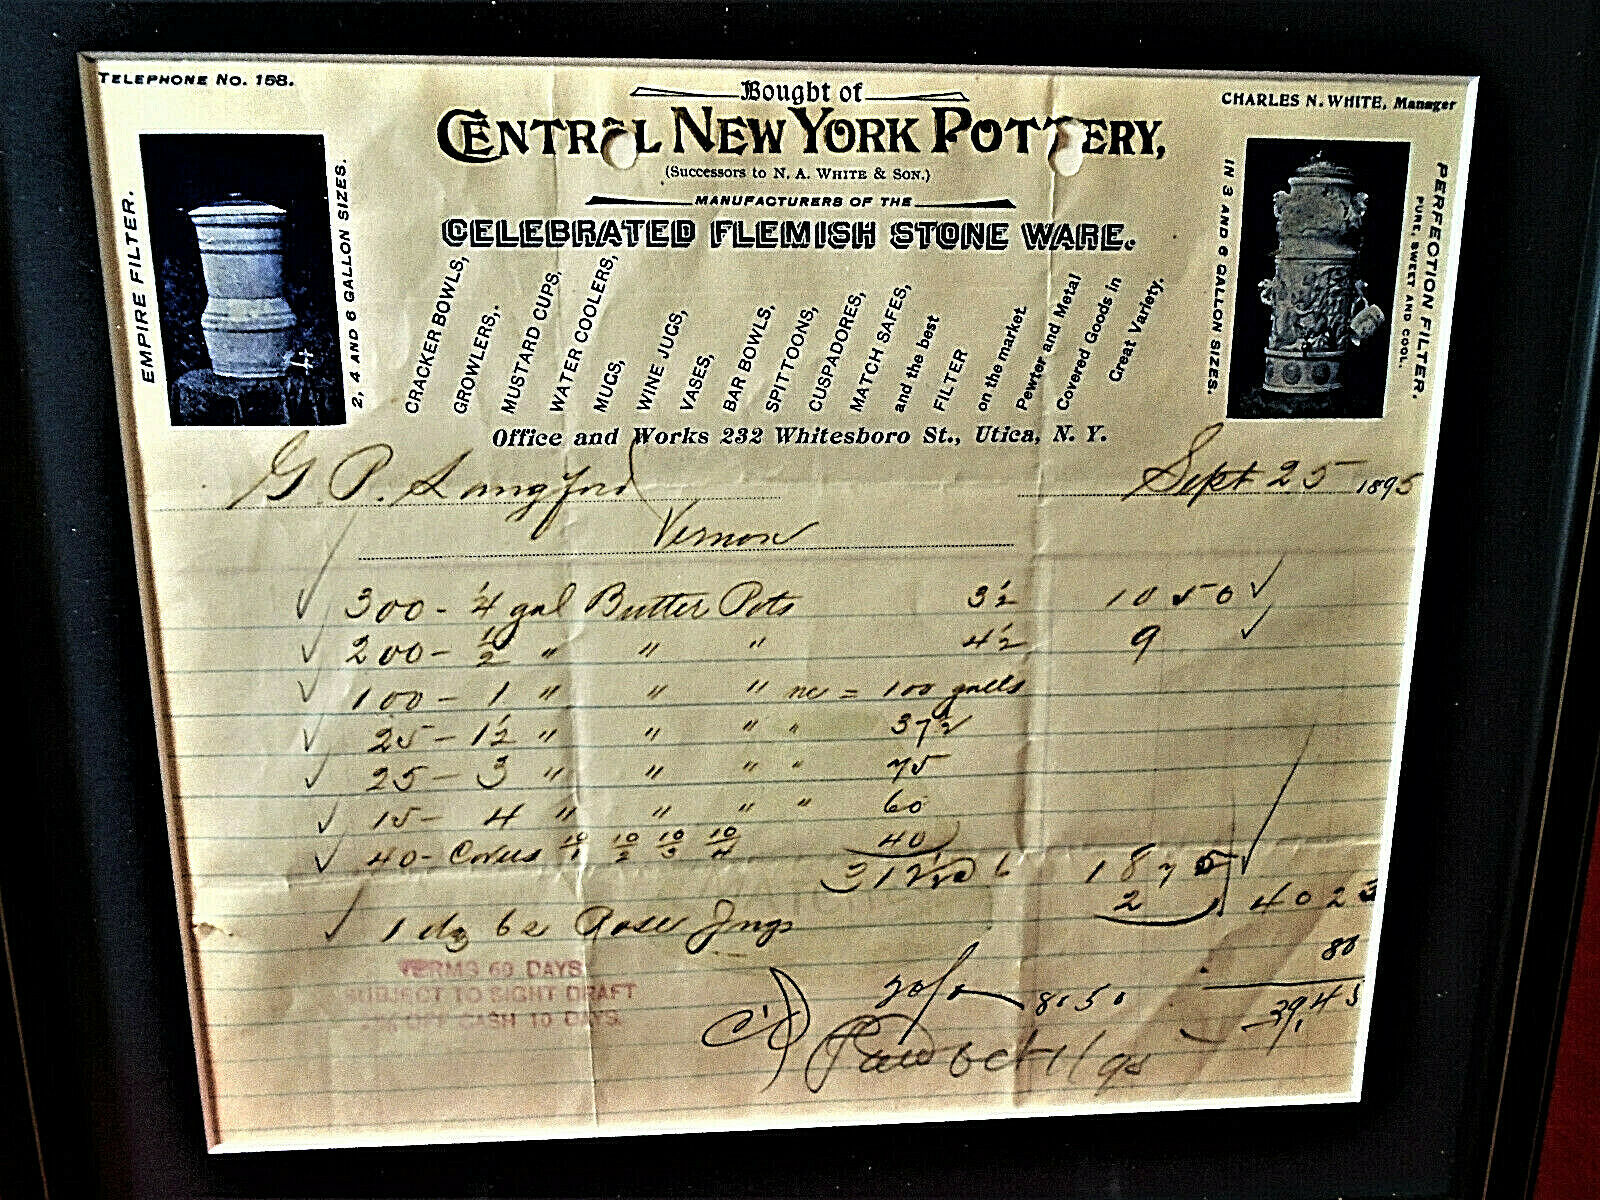 TELEPHONE NO. 158.
Bought of
CHARLES N. WHITE, Manager
CENTRAL NEW YORK POTTERY,
(Successors to N. A. WHITE & SON.)
MANUFACTURERS OF THE
CELEBRATED FLEMISH STONE WARE.
EMPIRE FILTER.
2, 4 AND 6 GALLON SIZES.
CRACKER BOWLS,
GROWLERS,
MUSTARD CUPS,
WATER COOLERS,
MUGS,
WINE JUGS,
VASES,
BAR BOWLS,
SPITTOONS,
CUSPADORES,
MATCH SAFES,
and the best
FILTER
on the market.
Pewter and Metal
Covered Goods in
Great Variety.
IN 3 AND 6 GALLON SIZES.
PERFECTION FILTER.
PURE, SWEET AND COOL.
Office and Works 232 Whitesboro St., Utica, N. Y.
G. P. Langford Sept 25 1895
Vernon
300 - 1/4 gal Butter Pots 3 1/2 10 50
200 - 1/2 " " " 4 1/2 9
100 - 1 " " " = 100 galls
25 - 1 1/2 " " " " 37 1/2
25 - 3 " " " " 75
15 - 4 " " " " 60
40 - Covers 10/1 10/2 10/3 10/4 40
312 1/2 6 18 75
1 dz Rose Jugs 2 40 23
TERMS 60 DAYS
SUBJECT TO SIGHT DRAFT
OFF CASH 10 DAYS.
80
39.43
Oct 1/95